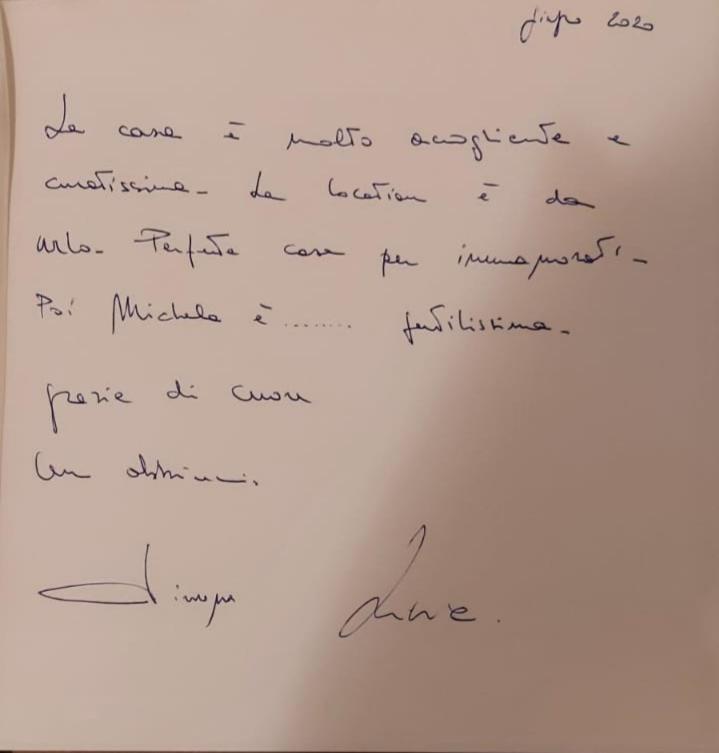 giugno 2020
La casa è molto accogliente e
curatissima - La location è da
urlo - Perfetta casa per innamorati -
Poi Michela è ........ gentilissima -
grazie di cuore
Un abbraccio.